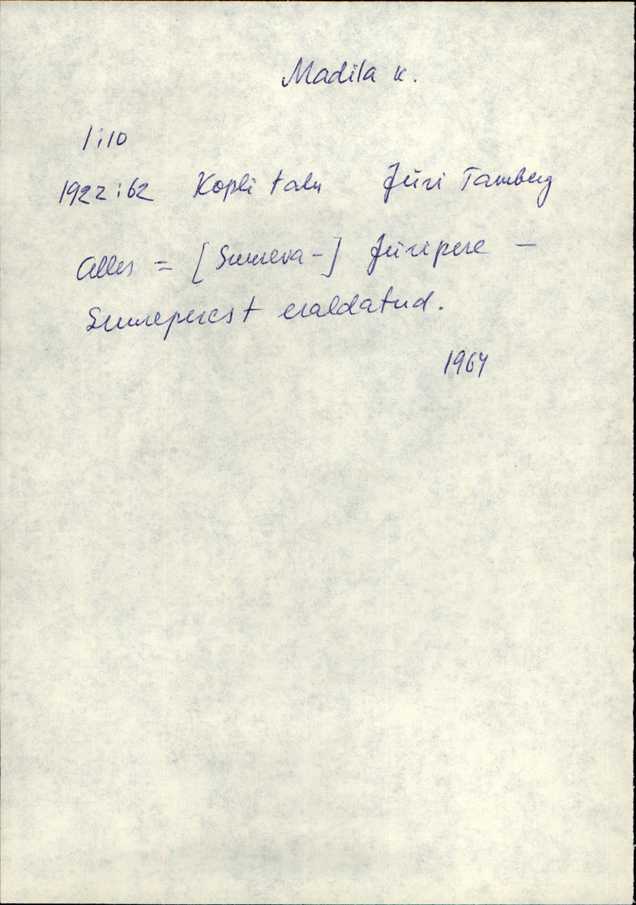 Madila k.
1:10
1922:62 Kopli talu Jüri Tamberg
Alles = [Suureva-] Jüripere -
Suureperest eraldatud.
1964